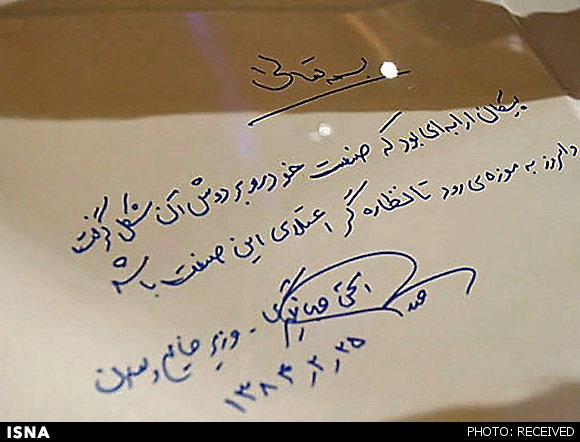 بسمه تعالی
پیکان ارابه‌ای بود که صنعت خودرو بر دوش آن شکل گرفت
و امروز به موزه می رود تا نظاره گر اعتلای این صنعت باشد
اسحق جهانگیری - وزیر صنایع و معادن
۱۳۸۴٫۲٫۲۵
ISNA
PHOTO: RECEIVED